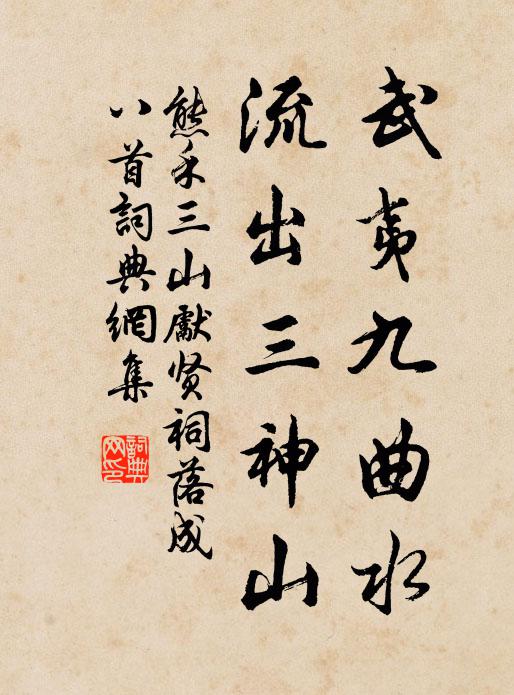 武夷九曲水
流出三神山
熊禾三山獻贤祠落成
八首詞典網集
詞典
网印